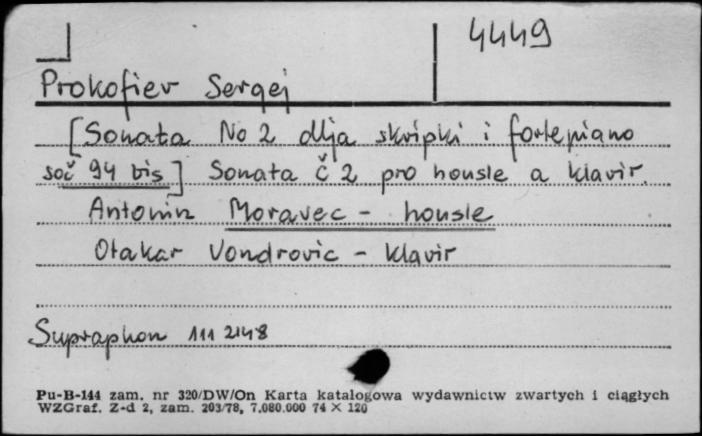 4449
Prokofiev Sergej
[Sonata No 2 dlja skripki i fortepiano
soč 94 bis] Sonata Č 2 pro housle a klavir.
Antonin Moravec - housle
Otakar Vondrovic - klavir
Supraphon 111 2148
Pu-B-144 zam. nr 320/DW/On Karta katalogowa wydawnictw zwartych i ciągłych
WZGraf. Z-d 2, zam. 203/78, 7.080.000 74 × 120